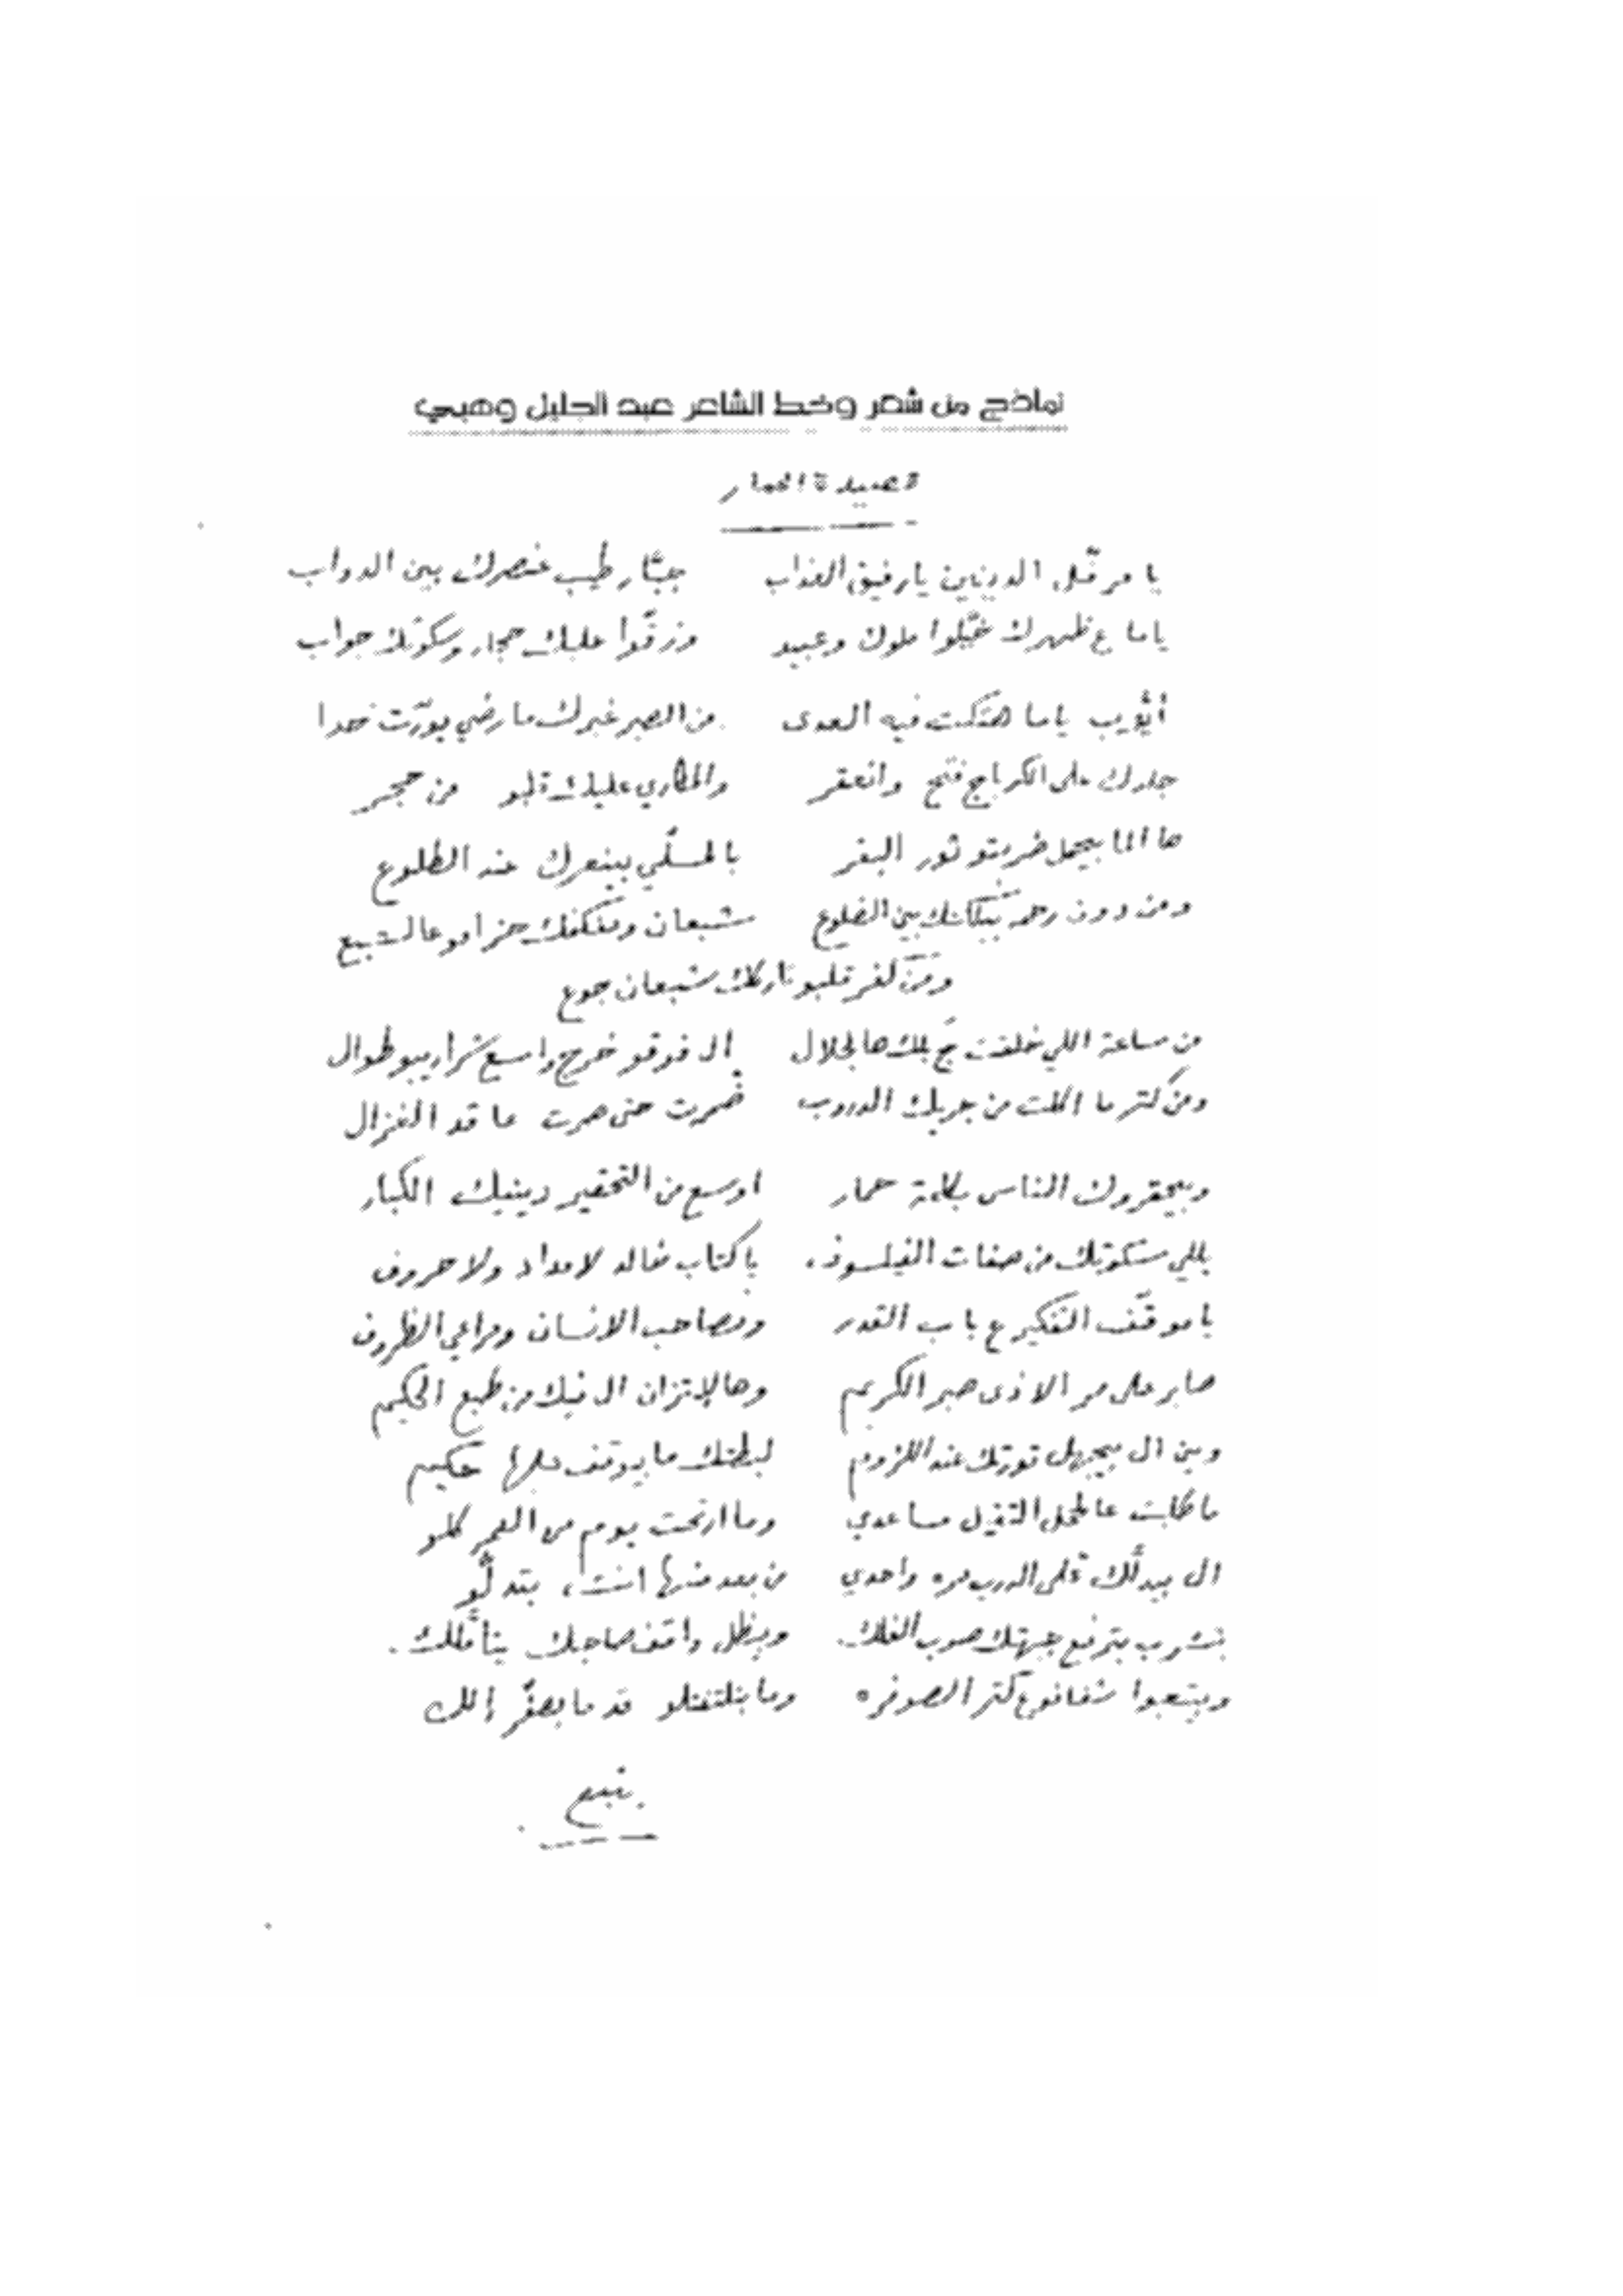 نماذج من شعر وخط الشاعر عبد الجليل وهبي
قصيدة الحمار
يا مرقّل الدينين يا رفيق العذاب جبّار طيب عنصرك بين الدواب
ياما ع ظهرك خيّلوا ملوك وعبيد وزقّوا عليك حجار وسكوتك جواب
أيّوب ياما هتكت فيه العدى من الصبر غيرك ما رضي يورّت حدا
جلدك على الكرباج فتح وانعقر والمكاري عليك قلبو من حجر
ها الما بيحمل ضربتو ثور البقر بالمسلّي بينعرك عند الطلوع
ومن دون رحمه بين الضلوع شبعان ومنكفك حزامو عالشبع
ومن كفر قلبو تاركك شبعان جوع
من ساعة اللي خلقت جبلك هالجلال ال فوقو خرج واسع شراريبو طوال
ومن كتر ما اكلت من جريك الدروب ضمرت حتى صرت عا قد الغزال
وبيحقروك الناس بكلمة حمار اوسع من التحقير دينيك الكبار
يللي سكوتك من صفات الفيلسوف، يا كتاب خالد لا مداد ولا حروف
يا موقّف التفكير ع باب القدر ومصاحب الانسان ومراعي الظروف
صابر على مر الاذى صبر الكريم وهالإتزان ال فيك من طبع الحكيم
ومين ال بيجهل قوتك عند اللزوم لبطتك ما بيوقف قبالها حكيم
ما طلبت عالحمل التقيل مساعدي وما ارتحت يوم من العمر كلو
ال بيدلّك على الدرب مره واحدي من بعد منها انت، بتدلّو
بتشرب بترفع جبهتك صوب الفلك وبيظل واقف صاحبك يتأمّلك.
وبيتعبوا شفافو ع كتر الصوفره وما بتلتفتلو قد ما يصفّر إلك
يتبع